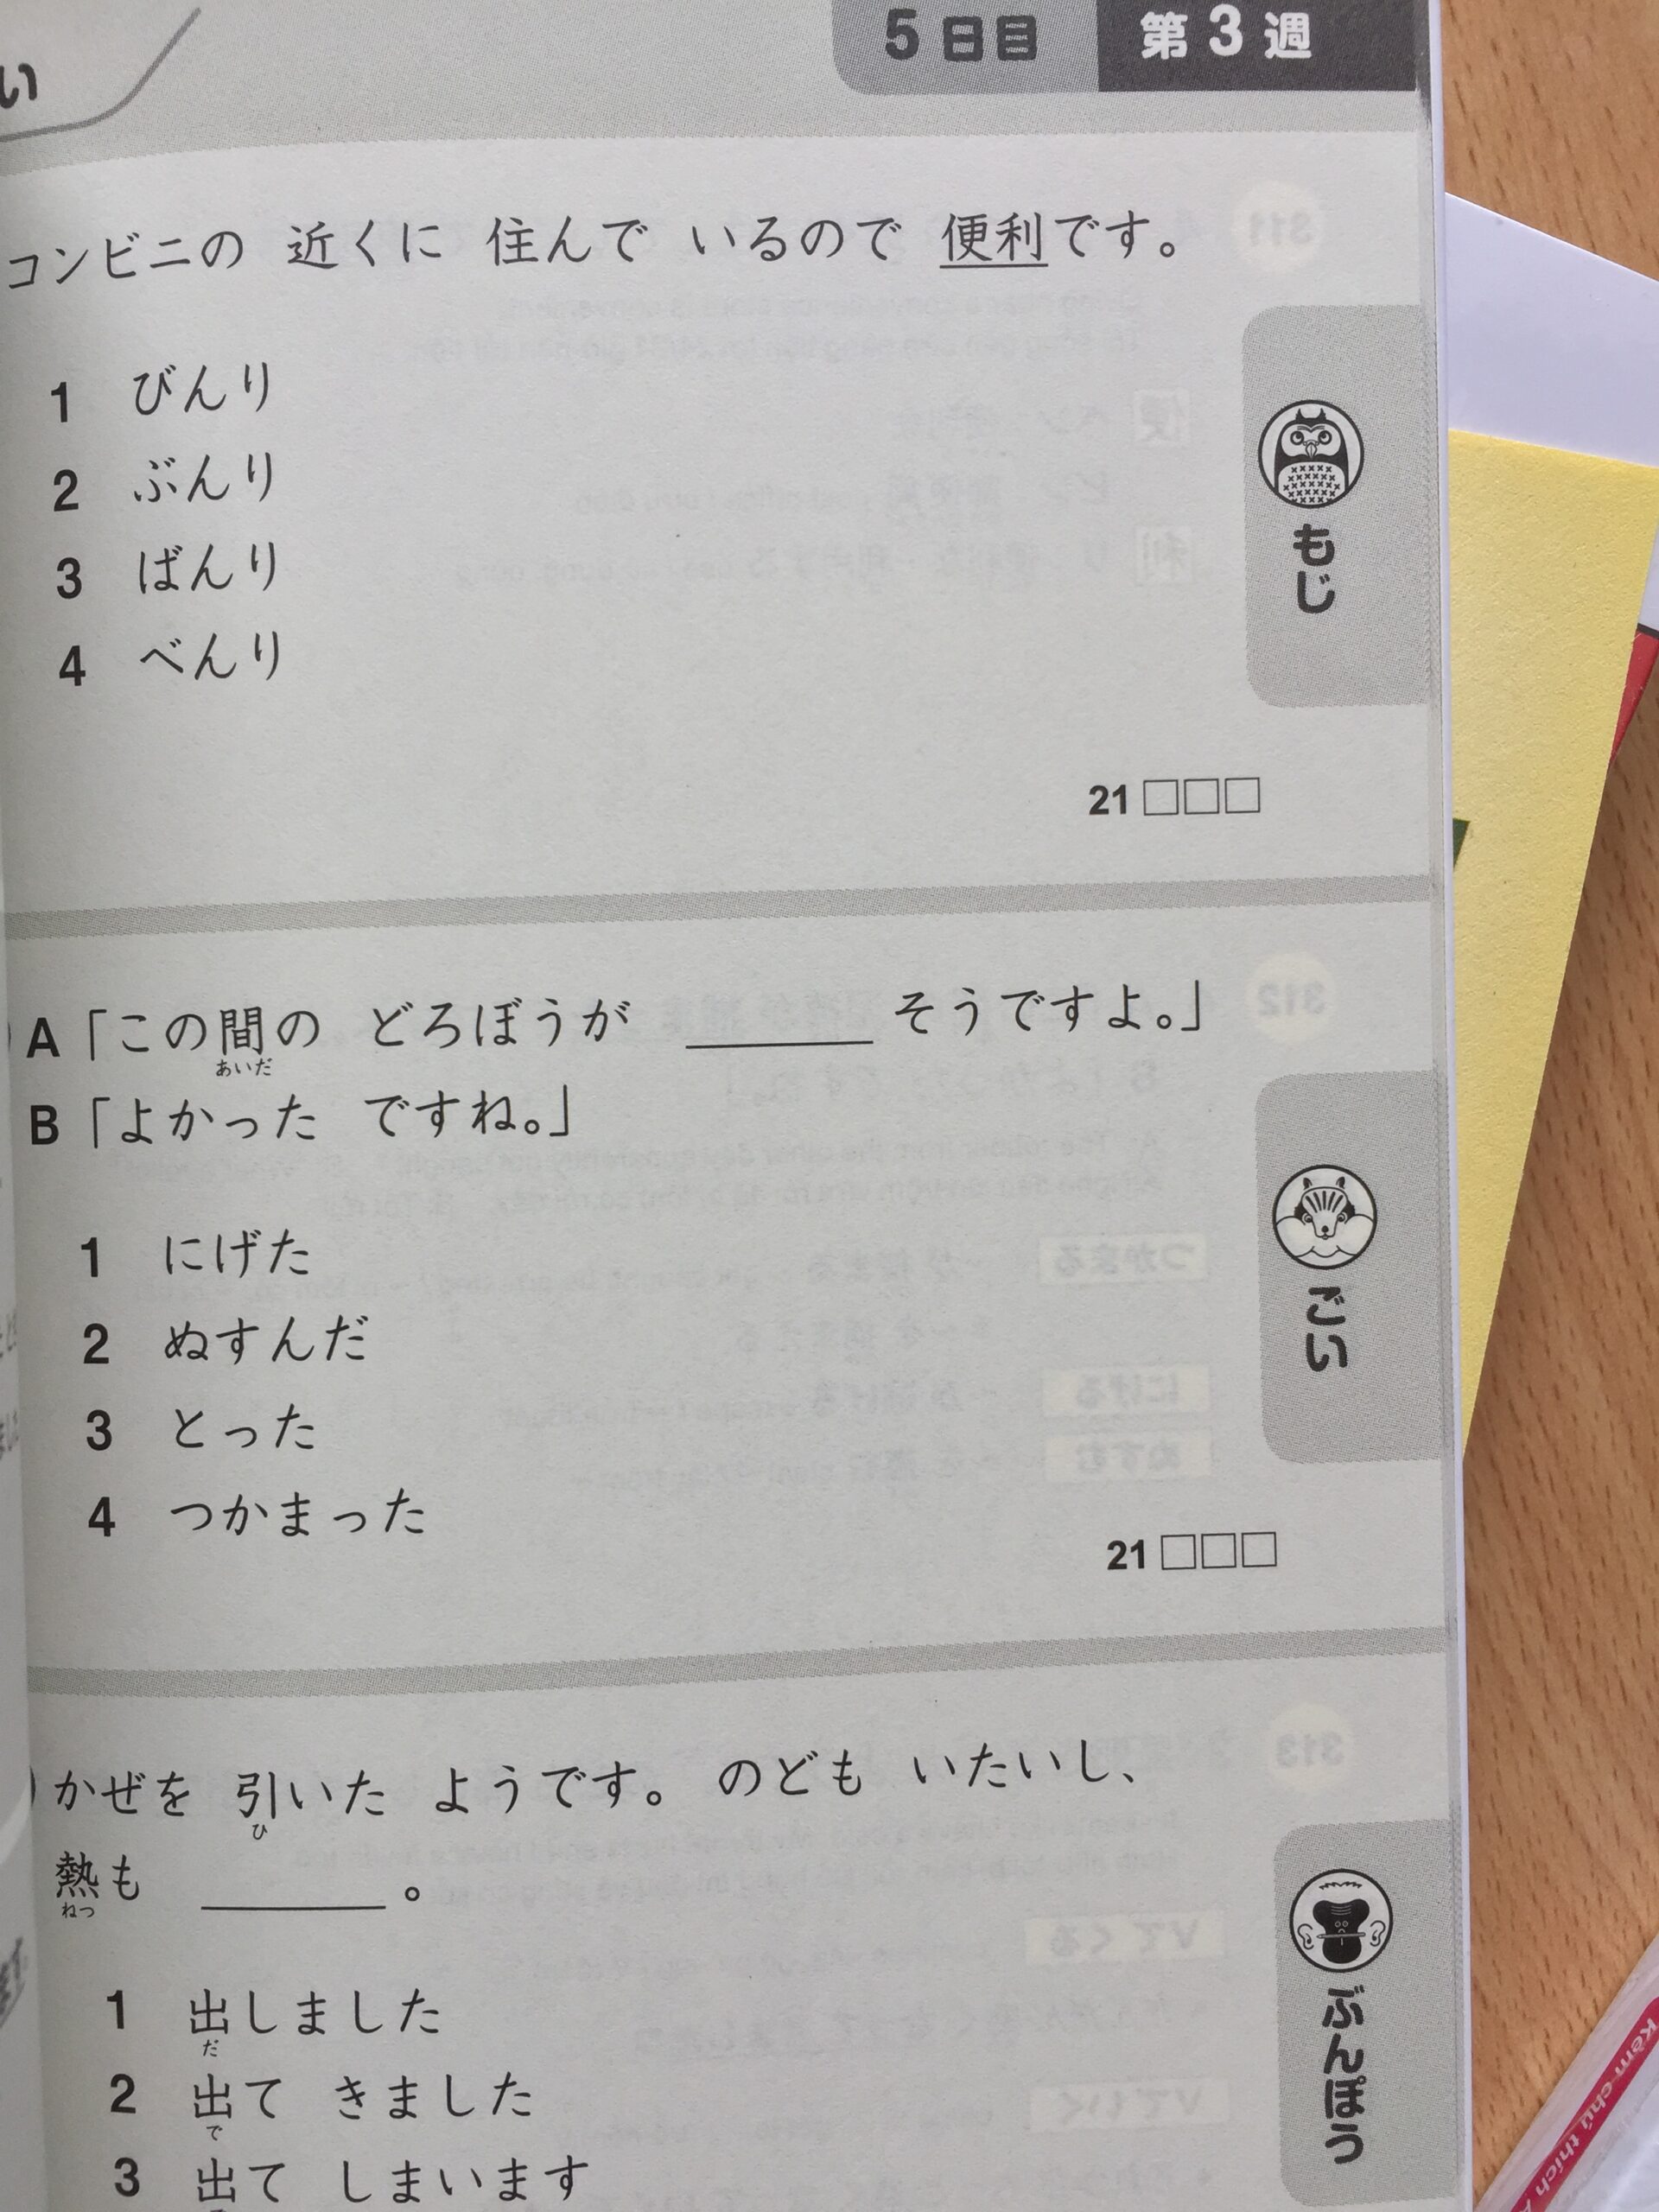 い
5日目 第3週
コンビニの 近くに 住んで いるので 便利です。
1 びんり
2 ぶんり
3 ばんり
4 べんり
もじ
21 □□□
A「この間の どろぼうが ______ そうですよ。」
あいだ
B「よかった ですね。」
1 にげた
2 ぬすんだ
3 とった
4 つかまった
ごい
21 □□□
かぜを 引いた ようです。 のども いたいし、
ひ
熱も ______ 。
ねつ
1 出しました
だ
2 出て きました
で
3 出て しまいます
ぶんぽう
Kèm chú thích